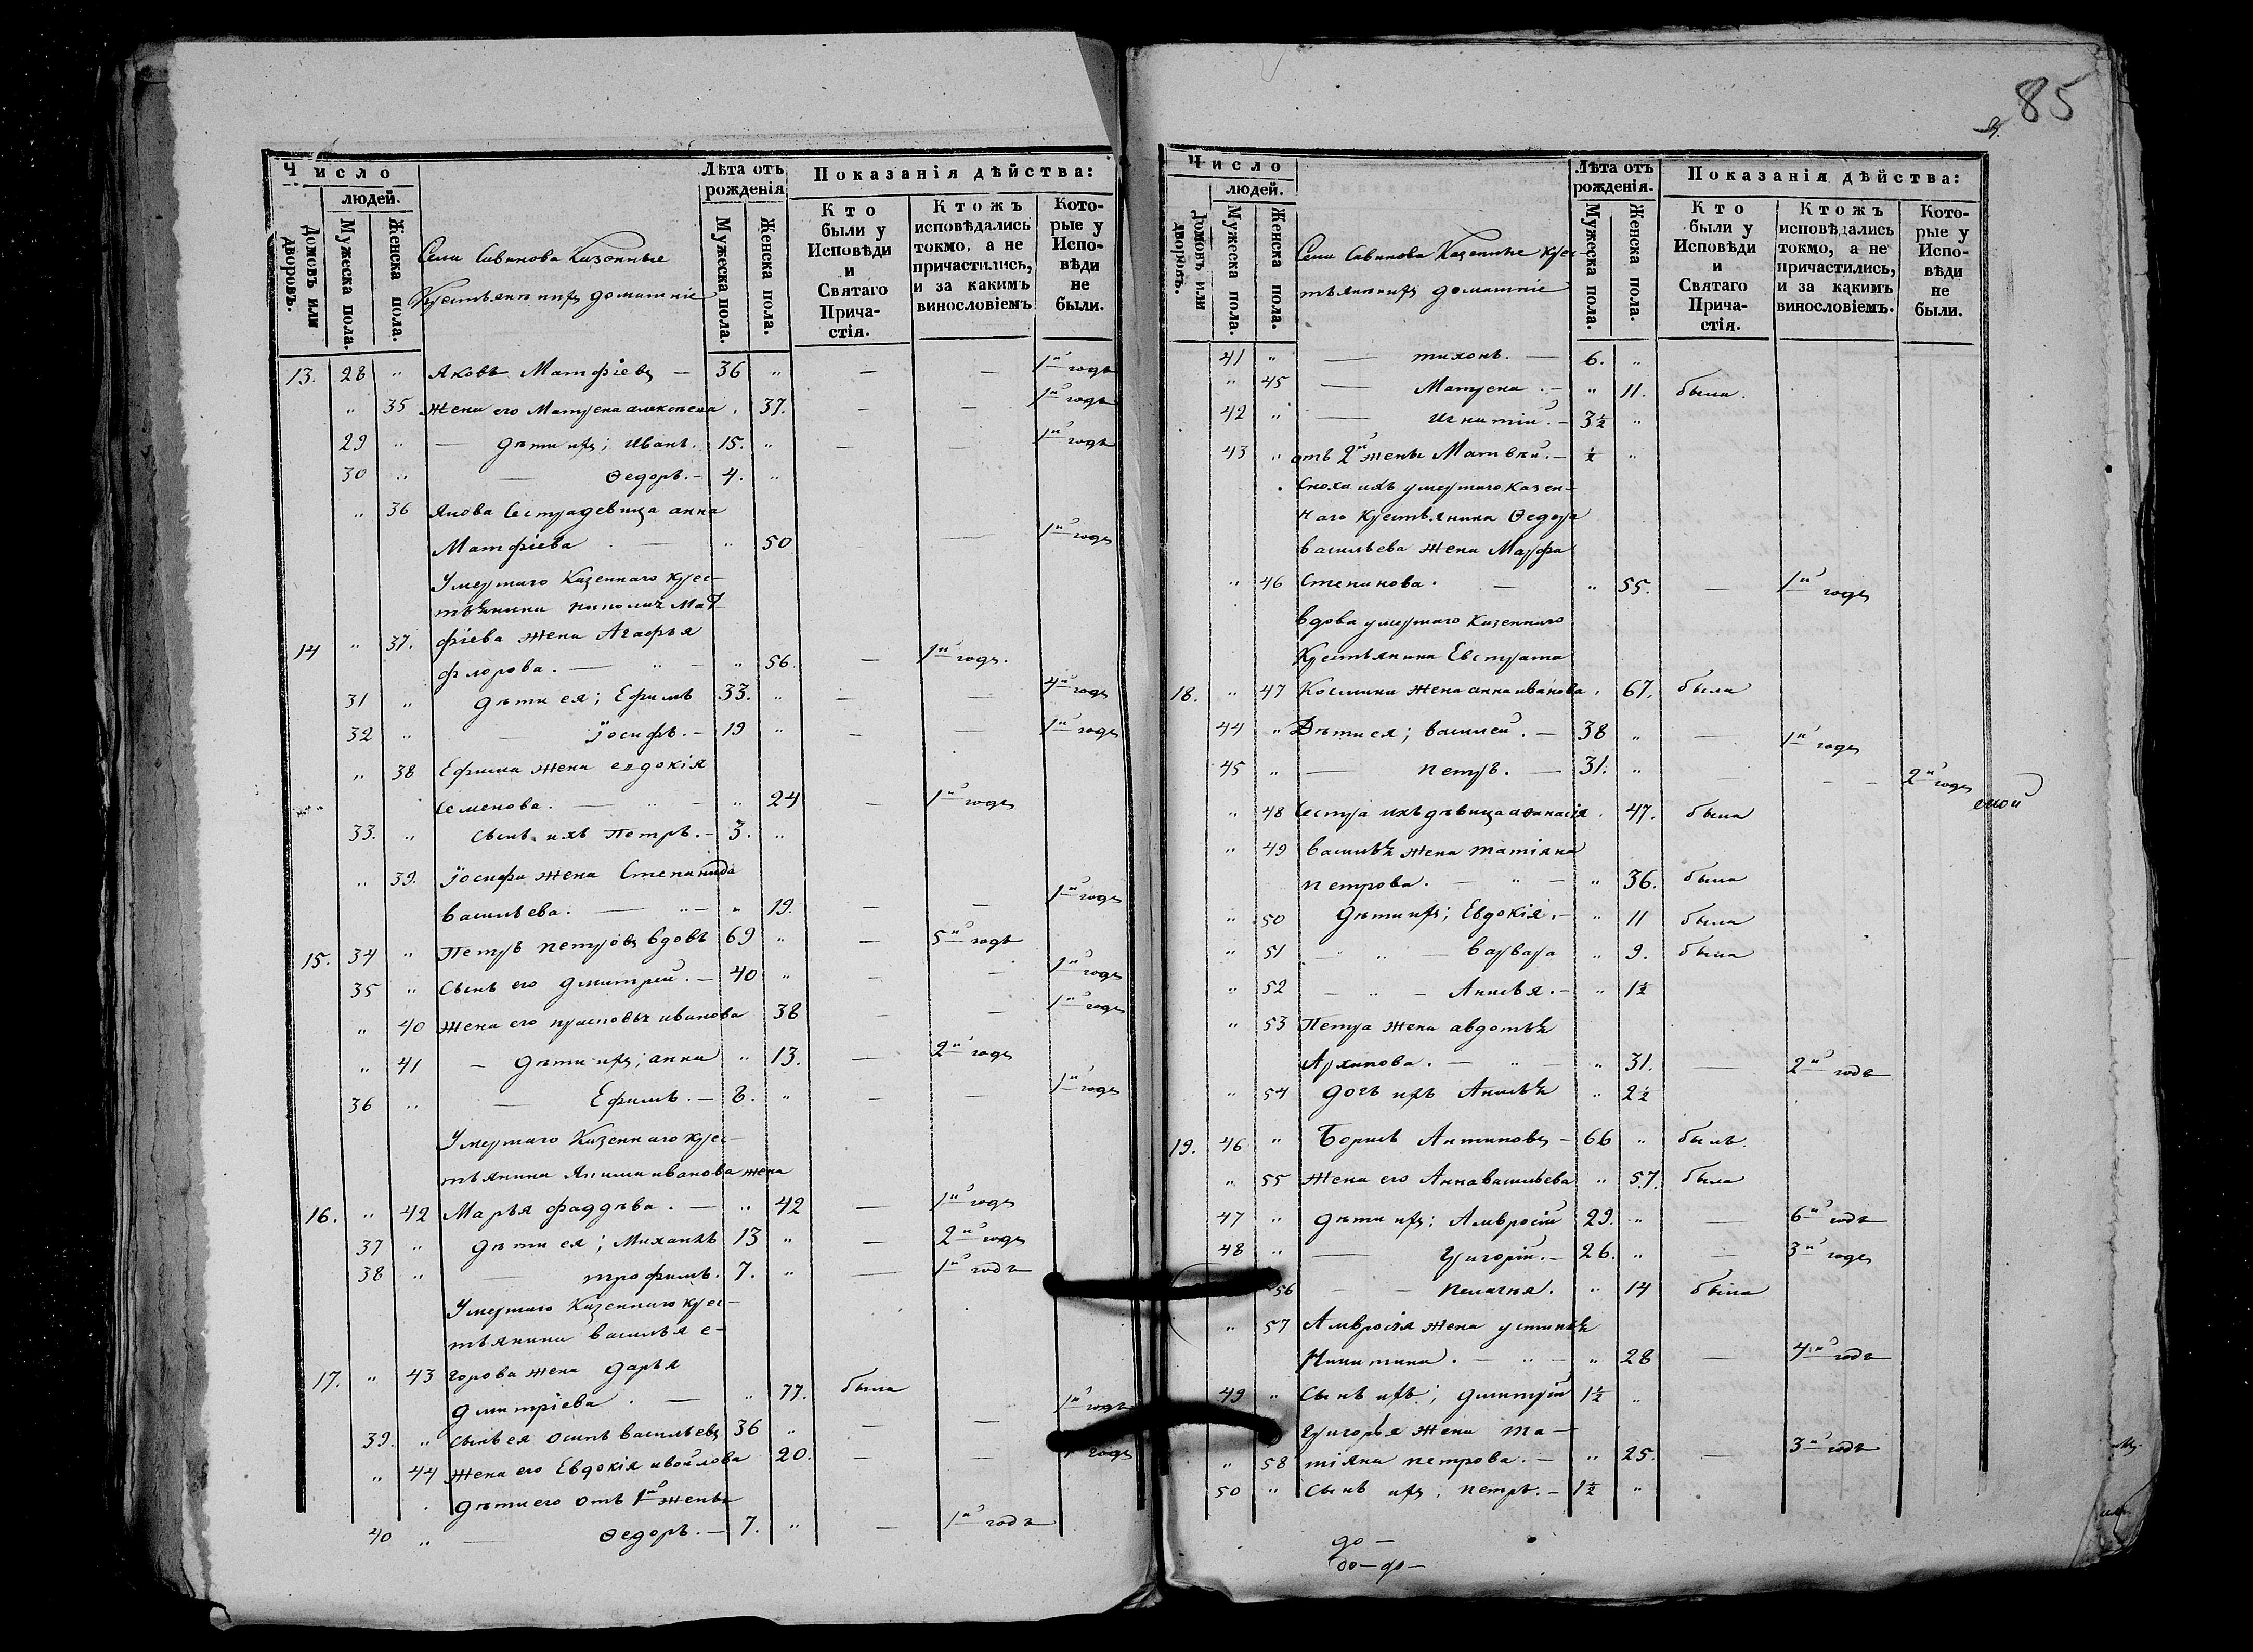 85
Число
людей.
Домовъ или дворовъ.
Мужеска пола.
Женска пола.
Села Савинова Казенные
Крестьяне и ихъ домашніе
Лѣта отъ рожденія
Мужеска пола.
Женска пола.
Показанія дѣйства:
Кто были у Исповѣди и Святаго Причастія.
Ктожъ исповѣдались токмо, а не причастились, и за какимъ винословіемъ
Которые у Исповѣди не были.
13. 28 " Яковъ Матфіевъ — 36 " — — 1й годъ
" 35 Жена его Матрена алексеева . 37. — — 1й годъ
29 " — дѣти ихъ; Иванъ. 15. " — — 1й годъ
30 " — Ѳедоръ. — 4. "
" 36 Якова Сестра девица анна
Матфіева . — " 50 — 1й годъ
Умершаго Казеннаго крес-
тьянина Мат-
14 " 37. фіева жена Агафья
флорова. — " — " 56. — 1й годъ.
31 " дѣти ея; Ефимъ 33. " — — 4й годъ
32 " — Іосифъ. — 19 " — — 1й годъ
" 38 Ефима жена евдокія
Семенова. — " — " 24 — 1й годъ
33. " сынъ ихъ Петръ. — 3. "
" 39. Іосифа жена Степанида
васильева. — " — " 19. — — 1й годъ
15. 34 " Петръ петровъ вдовъ 69 " — 5й годъ
35 " Сынъ его дмитрий. — 40 " — — 1й годъ
" 40 Жена его прасковья иванова 38 — — 1й годъ
" 41 — дѣти ихъ; анна " 13. — 2й годъ
36 " — Ефимъ. — 8. " — — 1й годъ
Умершаго Казеннаго крес-
тьянина Акима иванова жена
16. " 42 Марья фаддѣва. — " 42 — 1й годъ
37 " дѣти ея; Михаилъ 13 " — 2й годъ
38 " — трофимъ. 7. " — 1й годъ
Умершаго Казеннаго крес-
тьянина василья е-
17. " 43 горова жена дарья
дмитріева . — " 77. была
39. " сынъ ея осипъ васильевъ 36 " — — 1й годъ
" 44 Жена его Евдокія 20. — — годъ
дѣти его отъ 1й жены
40 " — Ѳедоръ. — 7. " — 1й годъ
Число
людей.
Домовъ или дворовъ.
Мужеска пола.
Женска пола.
Села Савинова Казенные крес-
тьяне и ихъ домашніе
Лѣта отъ рожденія.
Мужеска пола.
Женска пола.
Показанія дѣйства:
Кто были у Исповѣди и Святаго Причастія.
Ктожъ исповѣдались токмо, а не причастились, и за какимъ винословіемъ.
Которые у Исповѣди не были.
41 " — тихонъ. — 6. "
" 45 — Матрена. — " 11. была.
42 " — игнатій. — 3½ "
43 " отъ 2й жены Матвѣй. — ½ "
Сноха ихъ умершаго казен-
наго крестьянина Ѳедора
васильева жена Марфа
" 46 Степанова. — " 55. — 1й годъ
вдова умершаго Казеннаго
Крестьянина Евстрата
18. " 47 Космина жена анна иванова . 67. была
44 " Дѣти ея; василей. — 38 " — 1й годъ
45 " — петръ. — 31. " — — 2й годъ
" 48 Сестра ихъ дѣвица афанасія . 47. была
" 49 василья жена татіяна
петрова. — " — " 36. была
" 50 дѣти ихъ; Евдокія. — " 11 была
" 51 — " — варвара " 9. была
" 52 — " — Анисья. — " 1½
" 53 Петра жена авдотья
Архипова. — " — " 31. — 2й годъ
" 54 дочь ихъ Анисья " 2½
19. 46 " Борисъ Антиповъ — 66 " былъ.
" 55 Жена его Анна васильева " 57. была
47 " дѣти ихъ; Амвросій 29. " — 6й годъ
48 " — Григорій. — 26. " — 3й годъ
56 — — пелагея. " 14 была
" 57 Амвросія жена устинья
Никитина. — " — " 28 — 4й годъ
49 " Сынъ ихъ; дмитрій 1½ "
Григорья жена та-
" 58 тіяна петрова. — " 25. — 3й годъ
50 " Сынъ ихъ; петръ. — 1½ "
до —
до — до —